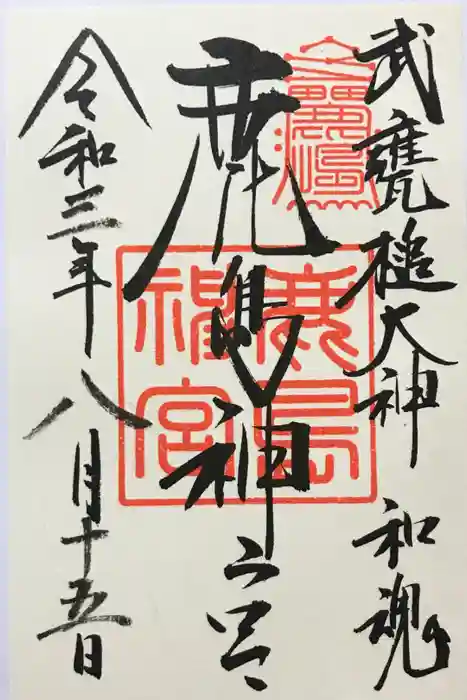 武甕槌大神 和魂
鹿島神宮
令和三年八月十五日
鹿島
神宮